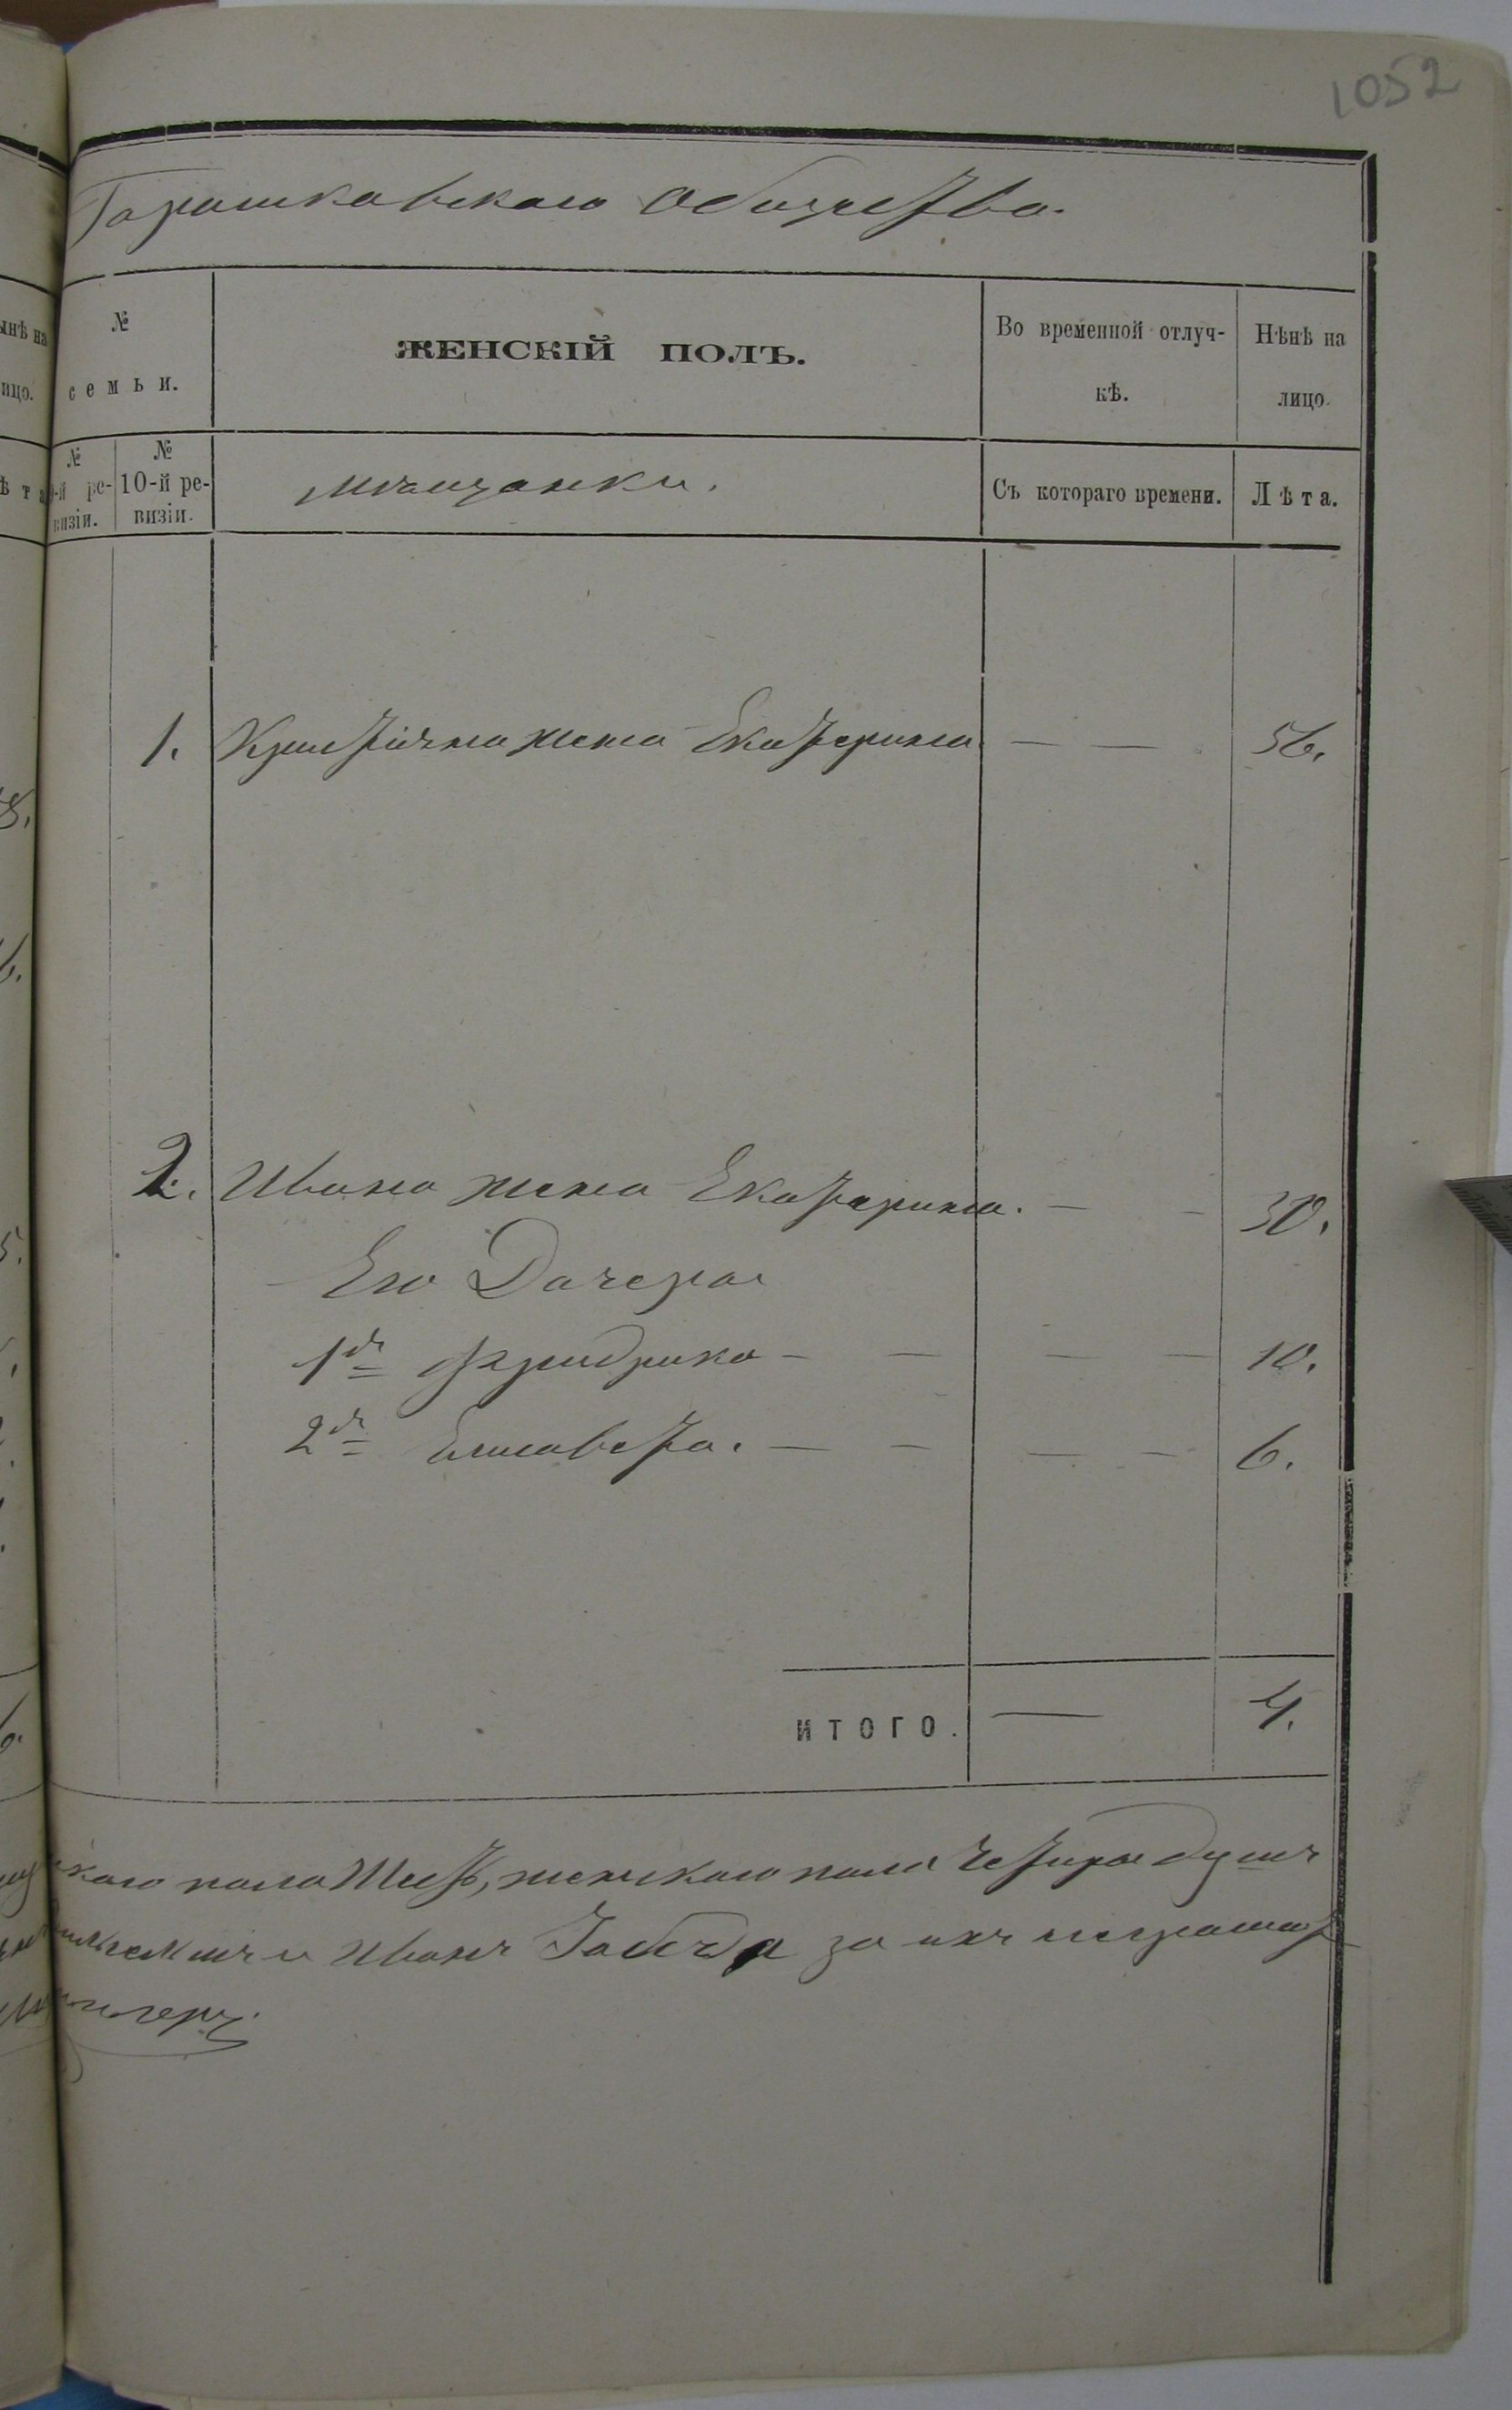 1052
Горошковскаго Общества.
№
семьи.
ЖЕНСКІЙ ПОЛЪ.
Во временной отлуч-
кѣ.
Нѣнѣ на
лицо.
№
-й ре-
визіи.
№
10-й ре-
визіи.
мѣщанки.
Съ котораго времени.
Лѣта.
1. жена Екатерина — — 56.
2. Ивана жена Екатерина. — — 30.
Его Дочери
1я Фридрика — — — — 10.
2я Елисавета. — — — — 6.
ИТОГО. — 4.
скаго пола Шесть, женскаго пола Четыре душъ
и Иванъ за ихъ неграмот